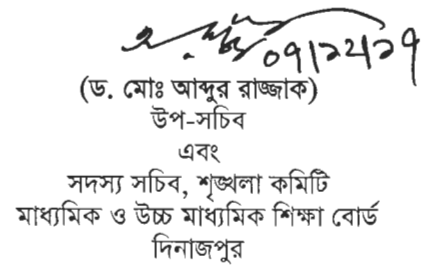 ০৭/১২/১৭
(ড. মোঃ আব্দুর রাজ্জাক)
উপ-সচিব
এবং
সদস্য সচিব, শৃঙ্খলা কমিটি
মাধ্যমিক ও উচ্চ মাধ্যমিক শিক্ষা বোর্ড
দিনাজপুর